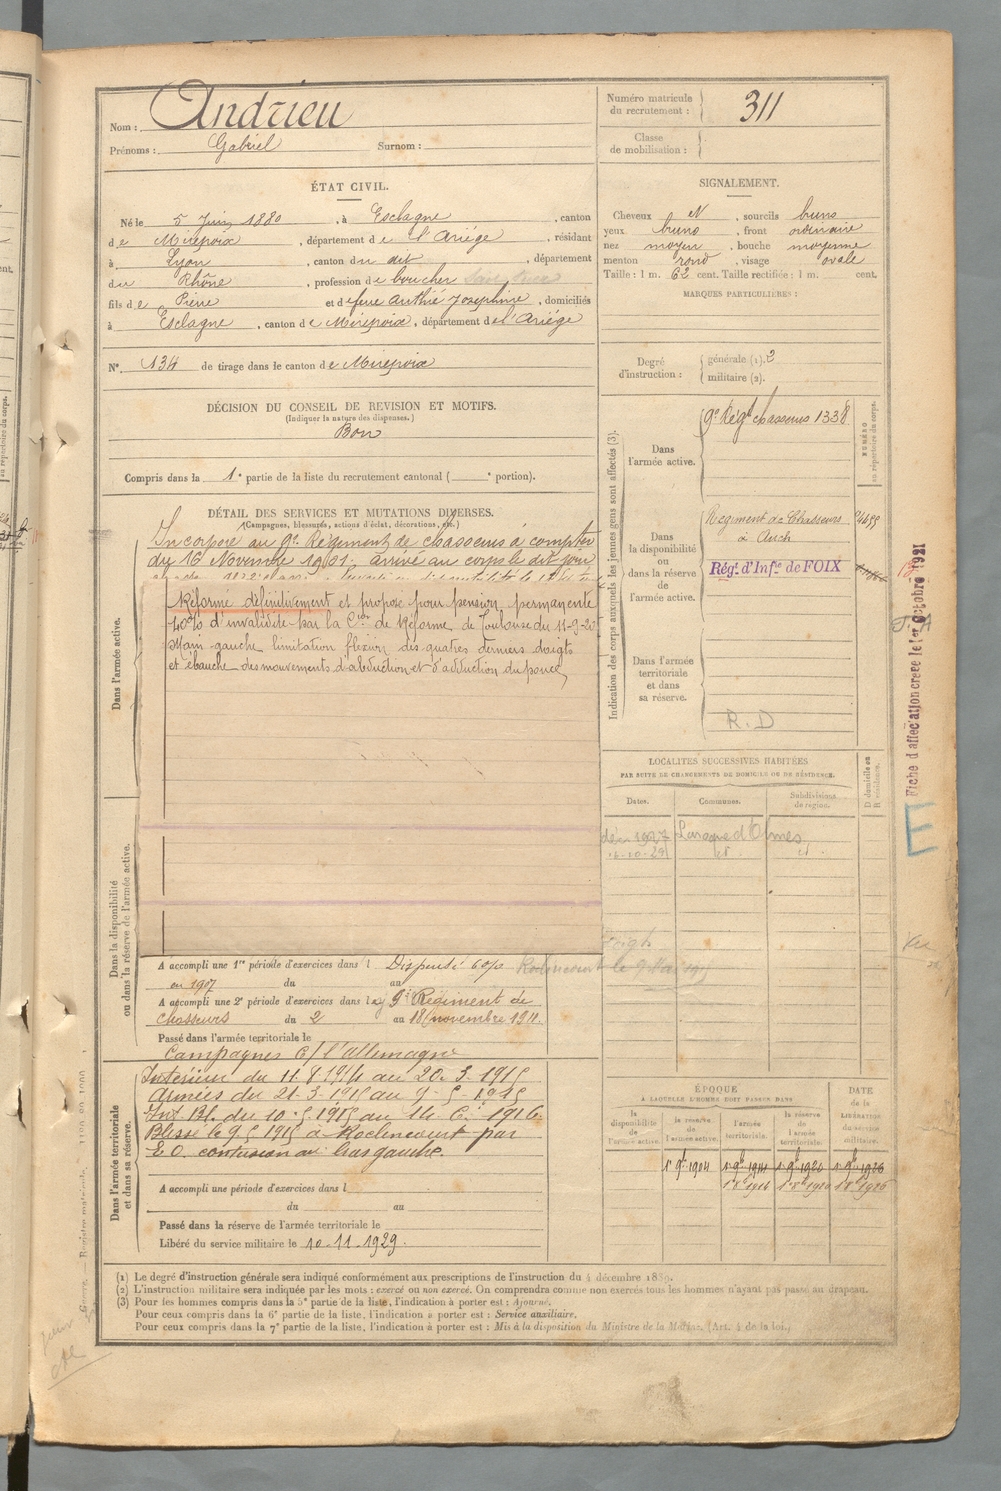 Nom : Andrieu
Prénoms : Gabriel Surnom :
ÉTAT CIVIL.
Né le 5 Juin 1880, à Esclagne, canton
de Mirepoix, département de l'Ariège, résidant
à Lyon, canton du dit, département
du Rhône, profession de boucher
fils de Pierre et de feue Authié Josephine, domiciliés
à Esclagne, canton de Mirepoix, département de l'Ariège
N° 134 de tirage dans le canton de Mirepoix
DÉCISION DU CONSEIL DE REVISION ET MOTIFS.
(Indiquer la nature des dispenses.)
Bon
Compris dans la 1e partie de la liste du recrutement cantonal ( e portion).
DÉTAIL DES SERVICES ET MUTATIONS DIVERSES.
(Campagnes, blessures, actions d'éclat, décorations, etc.)
Dans l'armée active.
Incorporé au 9e Régiment de chasseurs à compter
du 16 Novembre 1901, arrivé au corps le dit jour
Réformé définitivement et proposé pour pension permanente
40% d'invalidité par la Cion de Réforme de Toulouse du 11-9-20
Main gauche limitation flexion des quatres derniers doigts
et ébauche des mouvements d'abduction et d'adduction du pouce
Dans la disponibilité
ou dans la réserve de l'armée active.
A accompli une 1re période d'exercices dans l Dispensé 60%
en 1907 du au
A accompli une 2e période d'exercices dans le 9e Régiment de
chasseurs du 2 au 18 novembre 1911.
Passé dans l'armée territoriale le
Dans l'armée territoriale
et dans sa réserve.
Campagnes c/ l'Allemagne
Intérieur du 11-8-1914 au 20-3-1915
Armées du 21-3-1915 au 9-5-1915
Int. Bl. du 10-5-1915 au 14-6-1916
Blessé le 9-5 1915 à Roclincourt par
E.O. contusion au bras gauche.
A accompli une période d'exercices dans l
du au
Passé dans la réserve de l'armée territoriale le
Libéré du service militaire le 10-11-1929.
Numéro matricule
du recrutement : 311
Classe
de mobilisation :
SIGNALEMENT.
Cheveux N, sourcils bruns
yeux bruns, front ordinaire
nez moyen, bouche moyenne
menton rond, visage ovale
Taille : 1 m. 62 cent. Taille rectifiée : 1 m. cent.
MARQUES PARTICULIÈRES :
Degré
d'instruction :
générale (1). 2
militaire (2).
Indication des corps auxquels les jeunes gens sont affectés (3).
NUMÉRO
au répertoire du corps.
Dans
l'armée active.
9e Régt chasseurs 1338
Dans
la disponibilité
ou
dans la réserve
de
l'armée active.
Régiment de Chasseurs
à Auch
Régt d'Infie de FOIX
Dans l'armée
territoriale
et dans
sa réserve.
R.D
Fiche d'affectation créée le 1er Octobre 1921
E
LOCALITÉS SUCCESSIVES HABITÉES
PAR SUITE DE CHANGEMENTS DE DOMICILE OU DE RÉSIDENCE.
Dates. Communes. Subdivisions
de région.
D domicile ou
R résidence.
1927 Laroque d'Olmes
Roclincourt le 9 Mai 1915
ÉPOQUE
A LAQUELLE L'HOMME DOIT PASSER DANS
la
disponibilité
de
l'armée active.
la réserve
de
l'armée active.
l'armée
territoriale.
la réserve
de
l'armée
territoriale.
DATE
de la
LIBÉRATION
du service
militaire.
1er 9bre 1904 1er 9bre 1914 1er 9bre 1920 1er 9bre 1926
(1) Le degré d'instruction générale sera indiqué conformément aux prescriptions de l'instruction du 4 décembre 1889.
(2) L'instruction militaire sera indiquée par les mots : exercé ou non exercé. On comprendra comme non exercés tous les hommes n'ayant pas passé au drapeau.
(3) Pour les hommes compris dans la 5e partie de la liste, l'indication à porter est : Ajourné.
Pour ceux compris dans la 6e partie de la liste, l'indication à porter est : Service auxiliaire.
Pour ceux compris dans la 7e partie de la liste, l'indication à porter est : Mis à la disposition du Ministre de la Marine. (Art. 4 de la loi.)